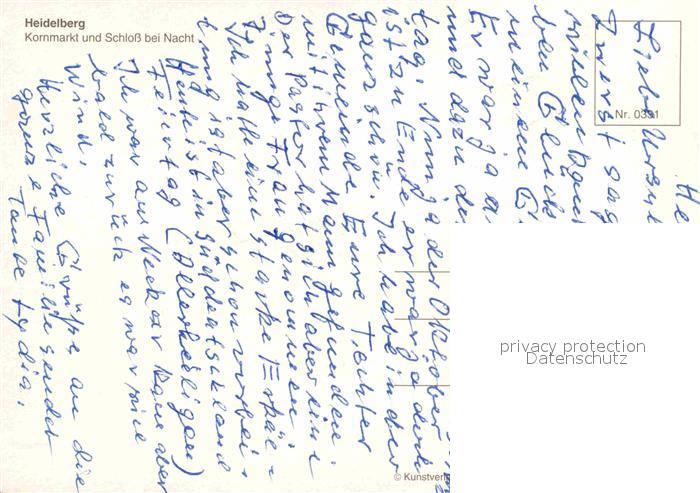 Heidelberg
Kornmarkt und Schloß bei Nacht
Nr. 0331
He
Liebe Ursul
Zuerst sag
willen Dan
ben Glück
meinem G
Er war ja a
und dazu de
tag. Nun ja der Oktober
ist zu Ende er war ja doch
ganz schön. Ich habe in der
Gemeinde Eure Tochter
mit ihrem Mann gefunden.
Der Pastor hat sich aber eine
junge Frau genommen.
Ich hatte eine starke Erkäl-
tung ist aber schon vorbei.
Heute ist in Süddeutschland
Feiertag (Allerheiligen)
Ich war am Neckar kam aber
bald zurück es war viel
Wind.
Herzliche Grüße an die
ganze Familie sendet
Tante Lydia.
privacy protection
Datenschutz
© Kunstverl